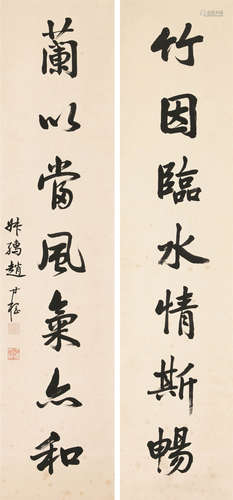 竹因臨水情斯暢
蘭以當風氣亦和
趙世